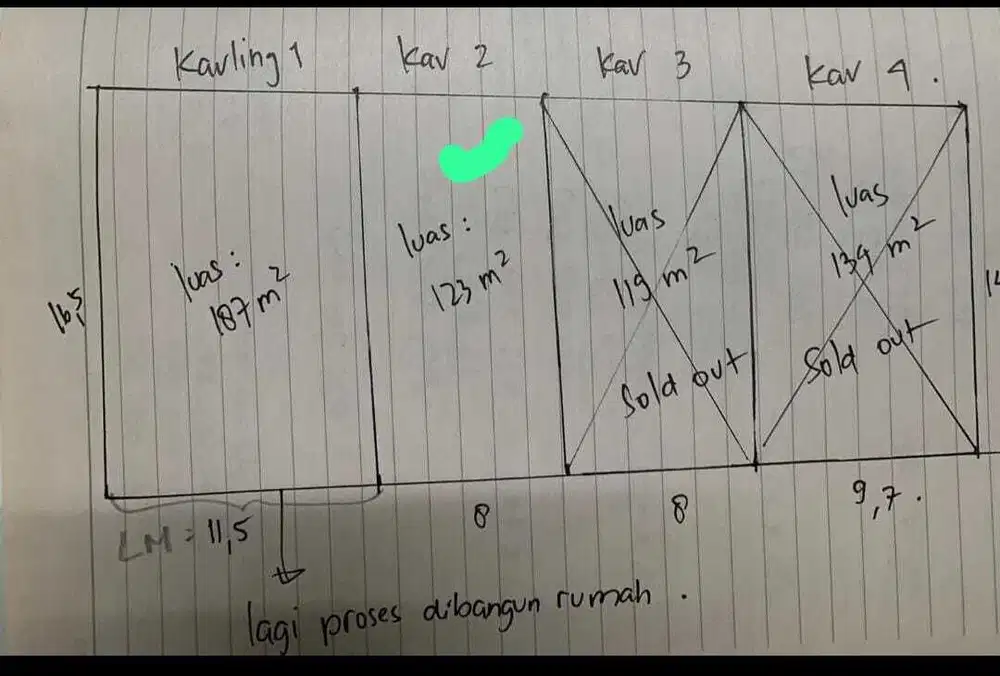 Kavling 1
Kav 2
Kav 3
Kav 4.
luas:
187 m²
luas:
123 m²
luas
119 m²
Sold out
luas
134 m²
Sold out
16,5
LM = 11,5
8
8
9,7.
lagi proses dibangun rumah.